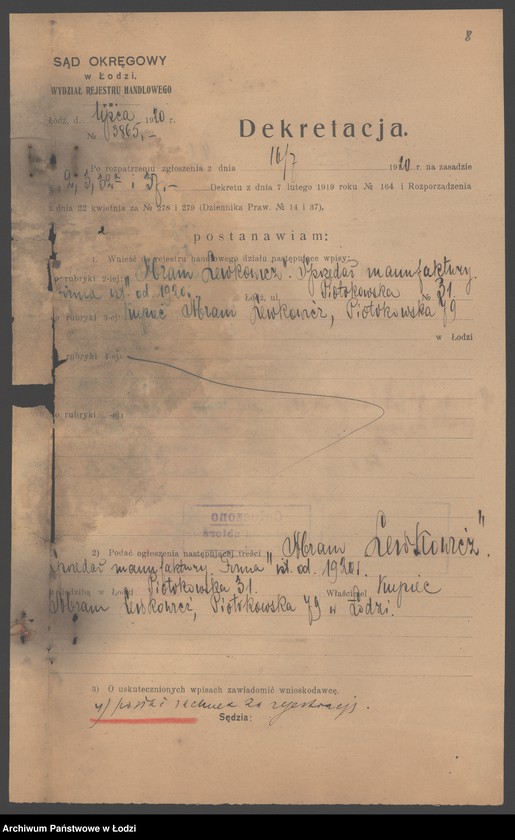 8
SĄD OKRĘGOWY
w Łodzi,
WYDZIAŁ REJESTRU HANDLOWEGO
Łódź, d. lipca 1920 r.
№ 3865,-
Dekretacja.
Po rozpatrzeniu zgłoszenia z dnia 16/7 1920 r. na zasadzie
Dekretu z dnia 7 lutego 1919 roku № 164 i Rozporządzenia
z dnia 22 kwietnia za № 278 i 279 (Dziennika Praw. № 14 i 37),
postanawiam:
1. Wnieść do rejestru handlowego działu następujące wpisy:
do rubryki 2-iej: "Abram Lewkowicz". Sprzedaż manufaktury.
Firma ist. od. 1920. Łódź, ul. Piotrkowska № 31.
do rubryki 3-ej: Kupiec Abram Lewkowicz, Piotrkowska 79
w Łodzi
rubryki 4-ej:
do rubryki -ej:
2) Podać ogłoszenia następującej treści "Abram Lewkowicz".
Sprzedaż manufaktury. Firma ist. od. 1920 r.
siedzibą w Łodzi Piotrkowska 31. Właściciel Kupiec
Abram Lewkowicz, Piotrkowska 79 w Łodzi.
3) O uskutecznionych wpisach zawiadomić wnioskodawcę.
4) rachunek za rejestrację.
Sędzia:
Archiwum Państwowe w Łodzi